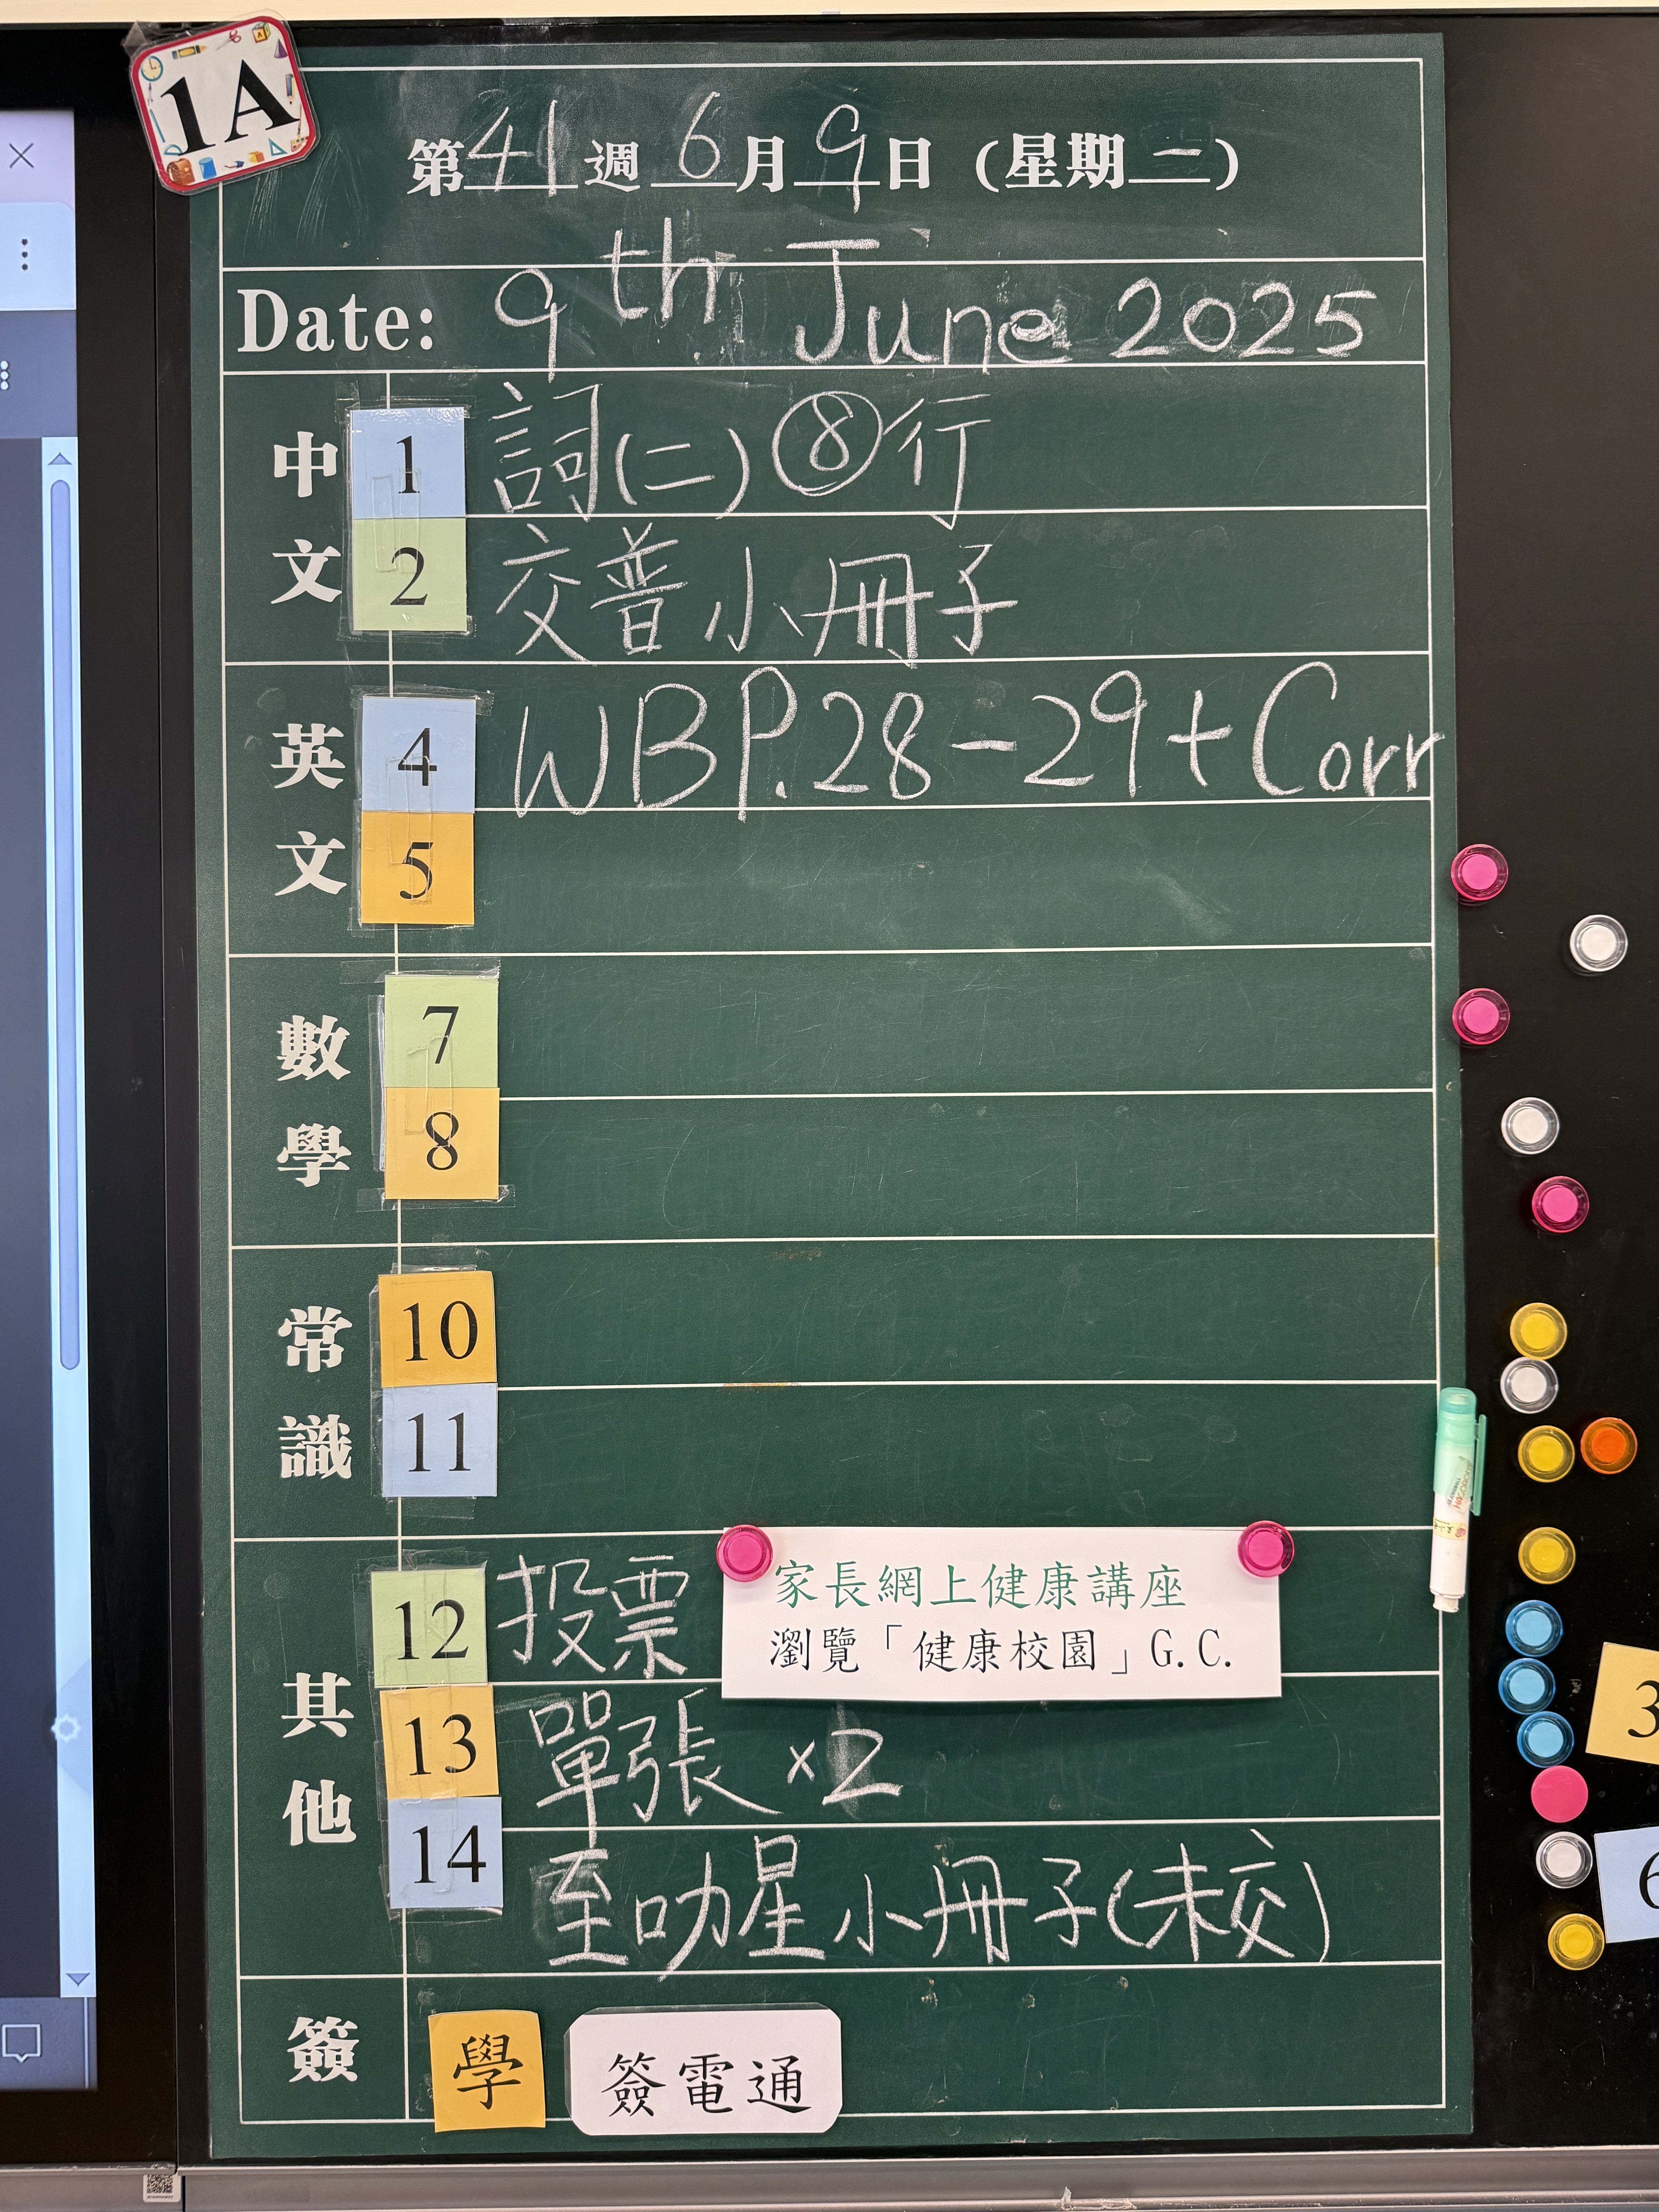 1A
第41週 6月9日 (星期二)
Date: 9th June 2025
中文
1 詞(二)⑧行
2 交普小冊子
英文
4 WB P.28-29+Corr
5
數學
7
8
常識
10
11
其他
12 投票
家長網上健康講座
瀏覽「健康校園」G.C.
13 單張 ×2
14 至叻星小冊子(未交)
簽
學 簽電通
3
6